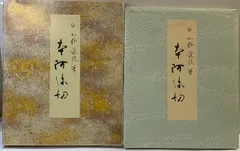 伝 小野道風筆
本阿弥切
伝 小野道風筆
本阿弥切